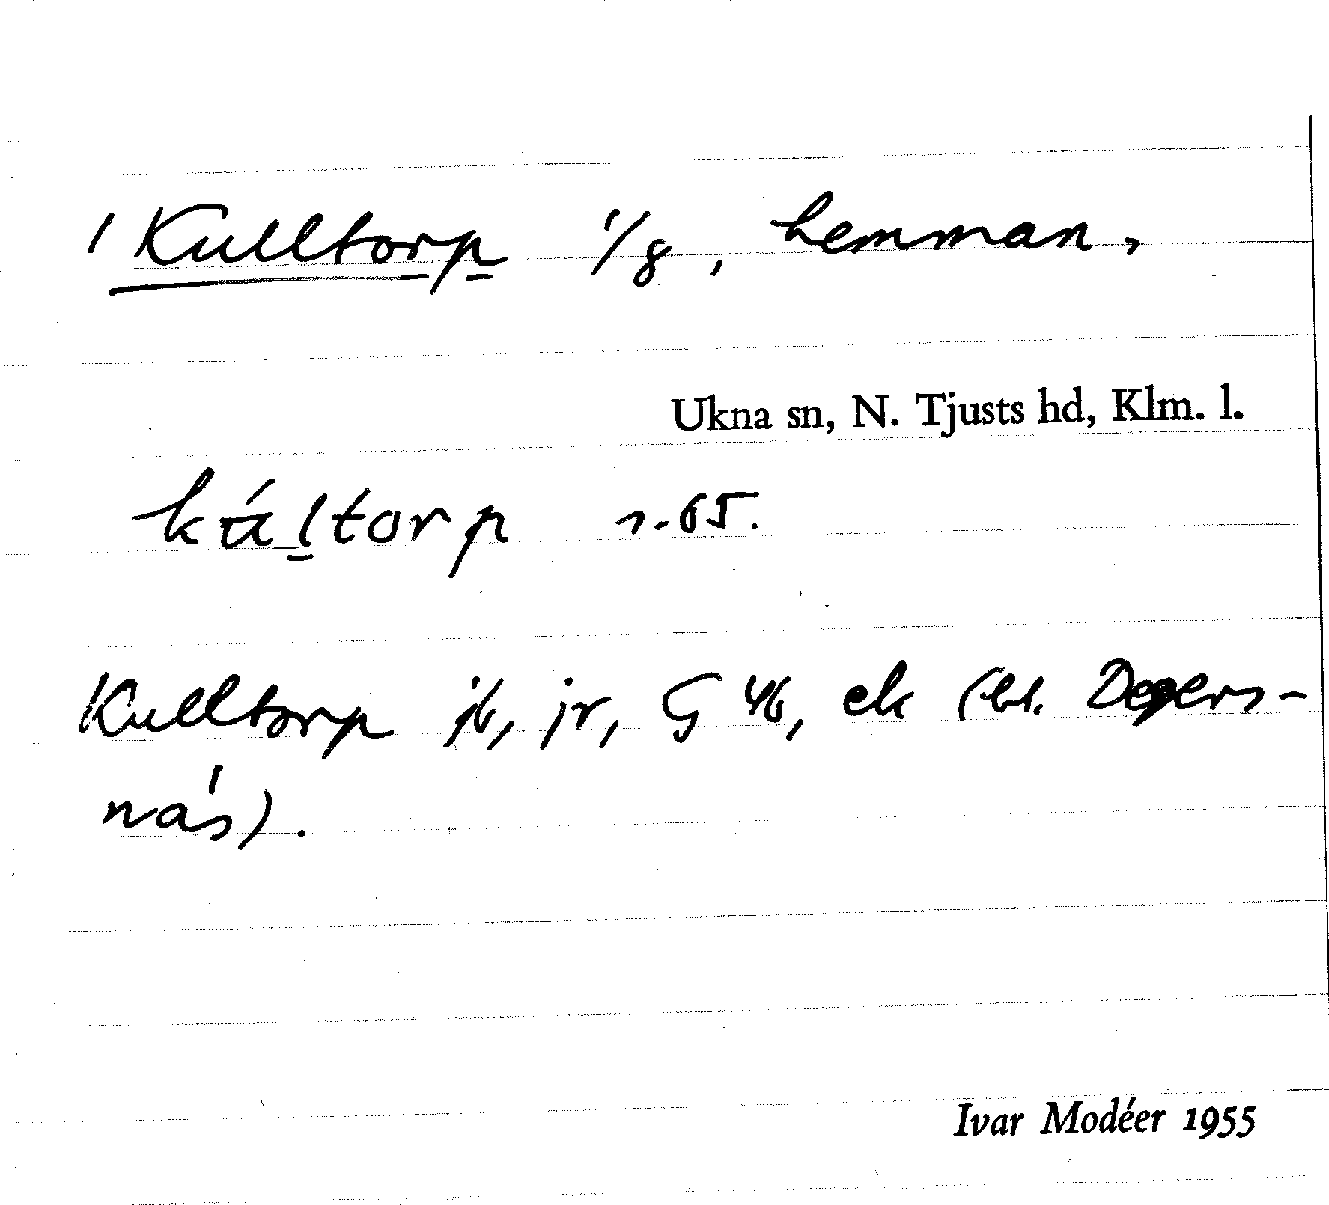 1 Kulltorp 1/8, hemman,
Ukna sn, N. Tjusts hd, Klm. l.
kúltorp s.65.
Kulltorp jb, jr, G 46, ek (bl. Degers-
näs).
Ivar Modéer 1955